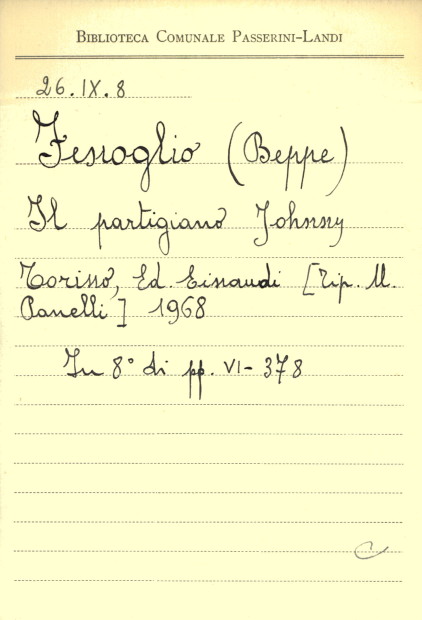 BIBLIOTECA COMUNALE PASSERINI-LANDI
26.IX.8
Fenoglio (Beppe)
Il partigiano Johnny
Torino, Ed. Einaudi [Tip. U.
Panelli] 1968
In 8° di pp. VI-378
C